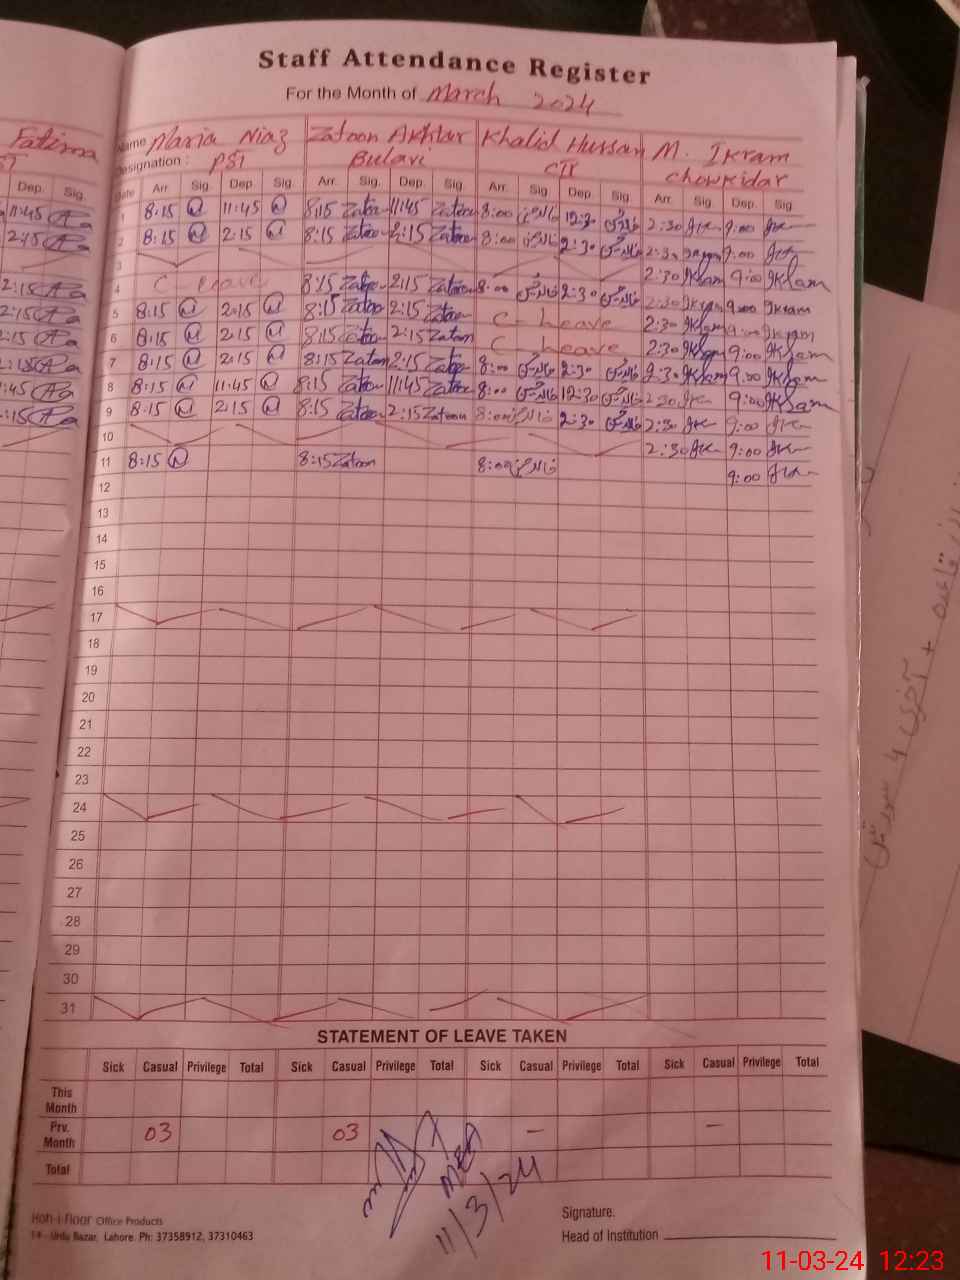 Staff Attendance Register
For the Month of March 2024
Fatima
Name Maria Niaz Zatoon Akhtar Khalid Hussan M. Ikram
Designation : PST Bulavi CTI Chowkidar
Dep. Sig. Date Arr. Sig. Dep. Sig. Arr. Sig. Dep. Sig. Arr. Sig. Dep. Sig. Arr. Sig. Dep. Sig.
11:45 1 8:15 11:45 8:15 Zatoon 11:45 Zatoon 8:00 12:30 2:30 9:00
2:15 2 8:15 2:15 8:15 Zatoon 2:15 Zatoon 8:00 2:30 2:30 Ikram 9:00
3 2:30 Ikram 9:00 Ikram
2:15 4 C Leave 8:15 Zatoon 2:15 Zatoon 8:00 2:30 2:30 Ikram 9:00 Ikram
2:15 5 8:15 2:15 8:15 Zatoon 2:15 Zatoon C- Leave 2:30 Ikram 9:00 Ikram
2:15 6 8:15 2:15 8:15 Zatoon 2:15 Zatoon C Leave 2:30 Ikram 9:00 Ikram
2:15 7 8:15 2:15 8:15 Zatoon 2:15 Zatoon 8:00 2:30 2:30 Ikram 9:00 Ikram
:45 8 8:15 11:45 8:15 Zatoon 11:45 Zatoon 8:00 12:30 2:30 9:00 Ikram
:15 9 8:15 2:15 8:15 Zatoon 2:15 Zatoon 8:00 2:30 2:30 9:00
10 2:30 9:00
11 8:15 8:15 Zatoon 8:00 9:00
12
13
14
15
16
17
18
19
20
21
22
23
24
25
26
27
28
29
30
31
STATEMENT OF LEAVE TAKEN
Sick Casual Privilege Total Sick Casual Privilege Total Sick Casual Privilege Total Sick Casual Privilege Total
This Month
Prv. Month 03 03 – –
Total
MEA
11/3/24
Koh-i-Noor Office Products
14 - Urdu Bazar, Lahore. Ph: 37358912, 37310463
Signature.
Head of Institution
11-03-24 12:23